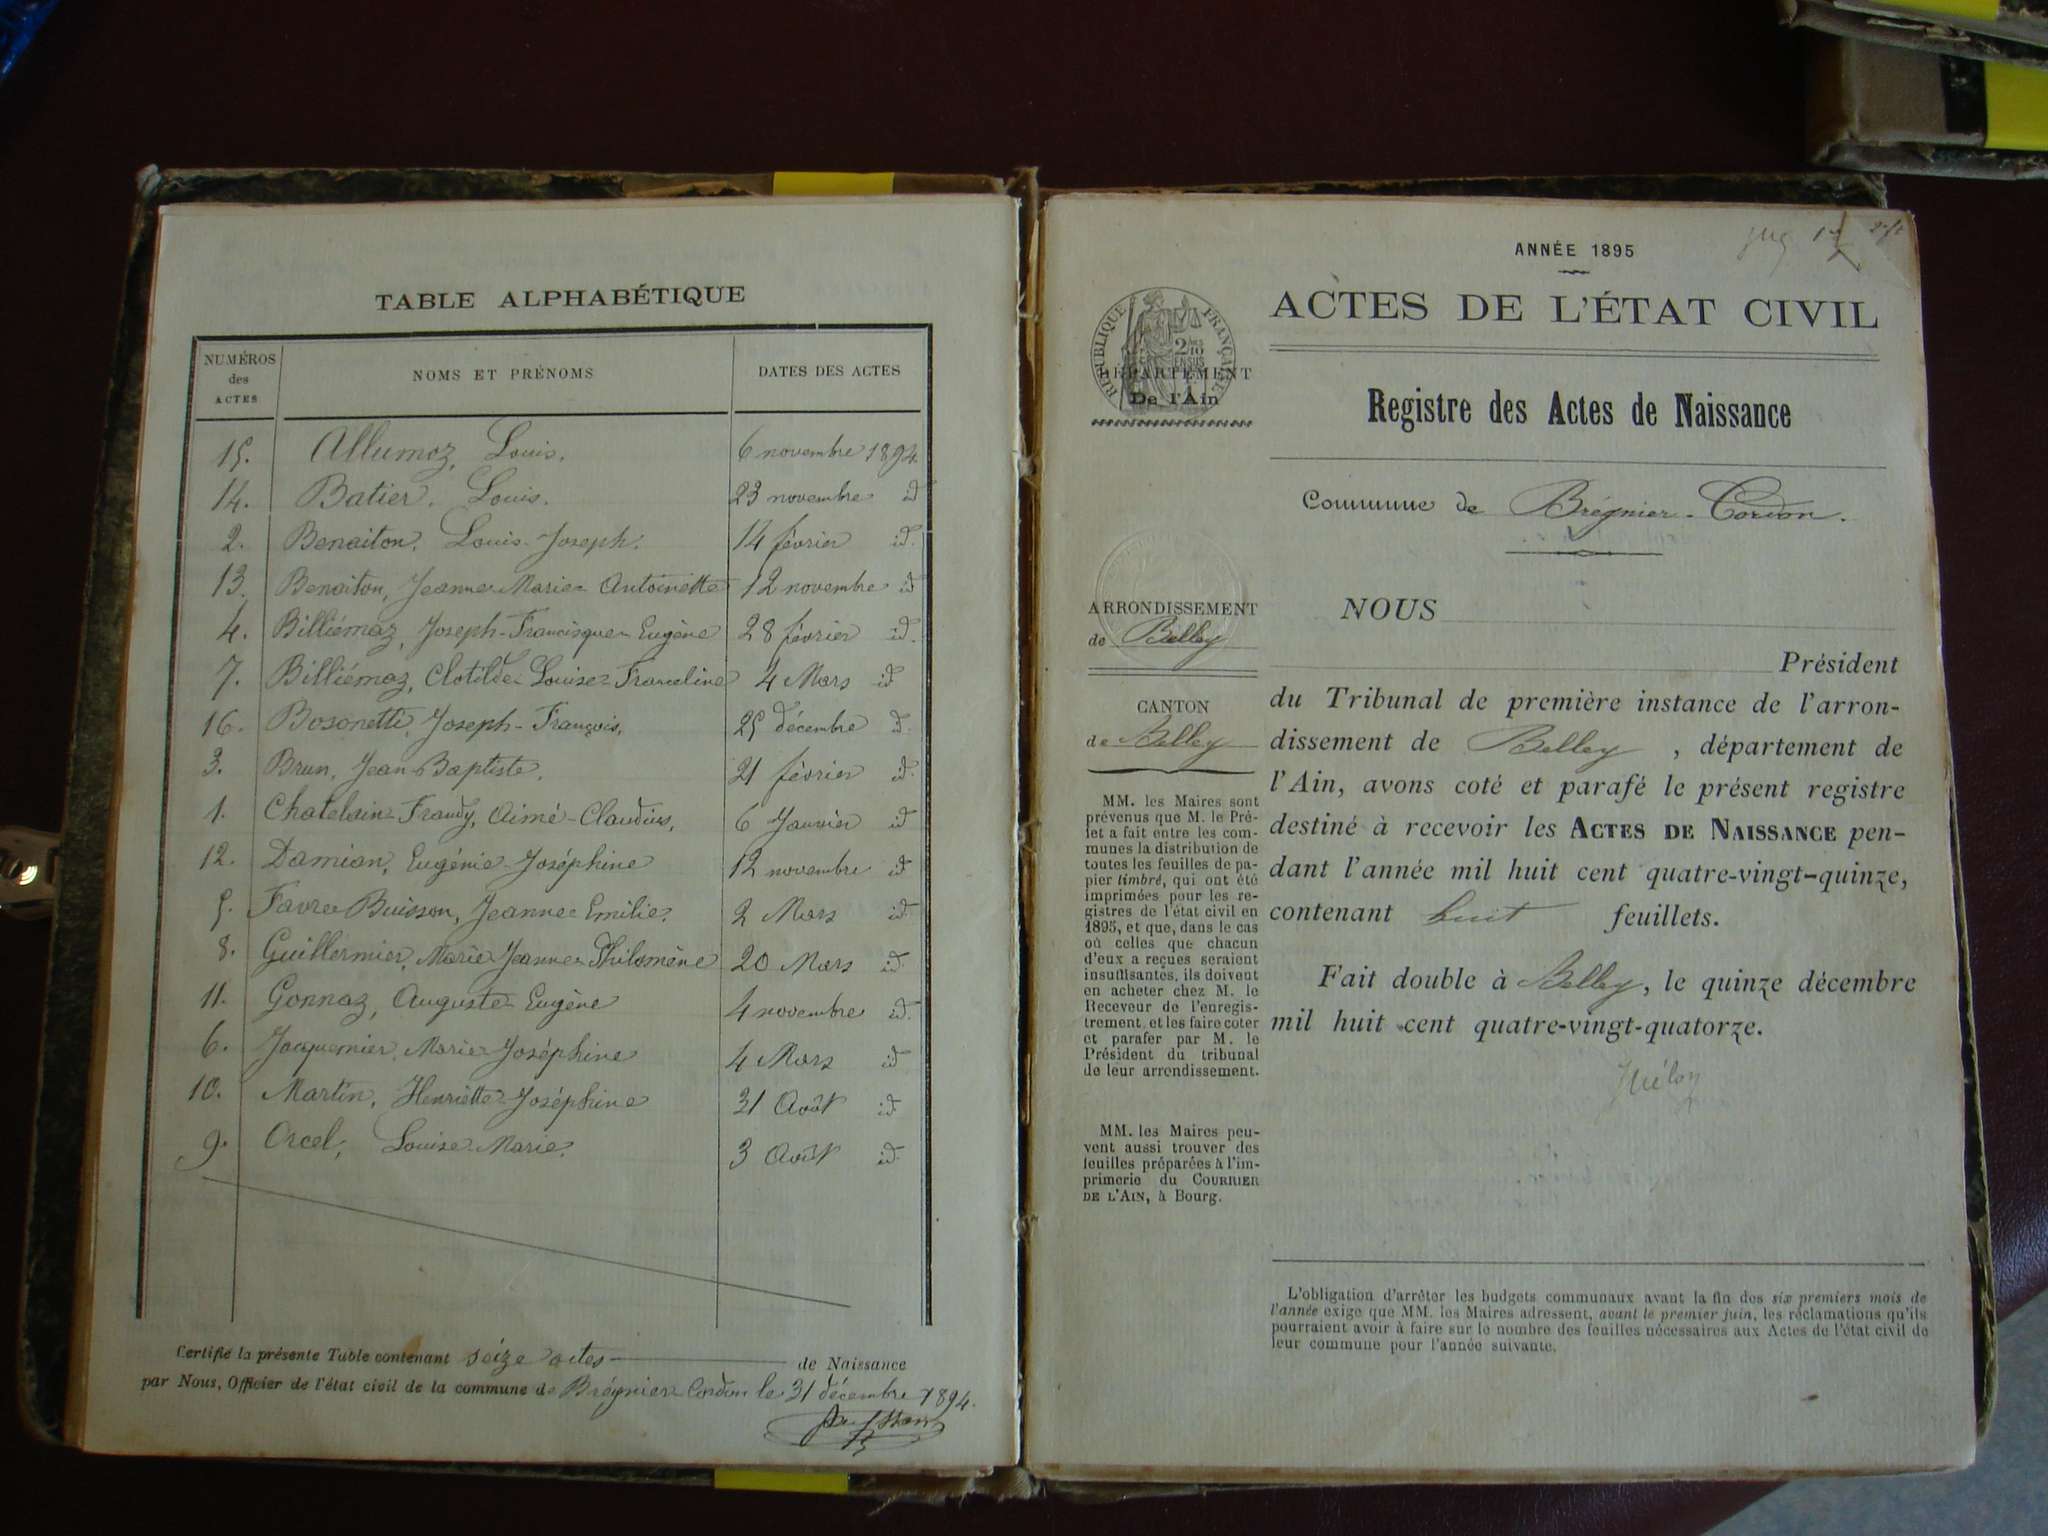 TABLE ALPHABÉTIQUE
NUMÉROS des ACTES NOMS ET PRÉNOMS DATES DES ACTES
15. Allumoz, Louis. 6 novembre 1894.
14. Batier, Louis. 23 novembre id
2. Benaiton, Louis-Joseph. 14 février id.
13. Benaiton, Jeanne-Marie-Antoinette 12 novembre id
4. Billiémaz, Joseph-Francisque-Eugène 28 février id.
7. Billiémaz, Clotilde-Louise-Franceline 4 Mars id
16. Bosonetti, Joseph-François, 25 décembre id.
3. Brun, Jean-Baptiste. 21 février id.
1. Chatelain-Frandy, Aimé-Claudius, 6 Janvier id
12. Damian, Eugénie-Joséphine 12 novembre id
5. Favre-Buisson, Jeanne-Emilie. 2 Mars id.
8. Guillermier, Marie-Jeanne-Philomène 20 Mars id.
11. Gonnaz, Auguste-Eugène 4 novembre id.
6. Jacquemier, Marie-Joséphine 4 Mars id
10. Martin, Henriette-Joséphine 31 Août id
9. Orcel, Louise-Marie. 3 Août id.
Certifié la présente Table contenant seize actes de Naissance
par Nous, Officier de l'état civil de la commune de Brégnier-Cordon le 31 décembre 1894.
ANNÉE 1895
ACTES DE L'ÉTAT CIVIL
RÉPUBLIQUE FRANÇAISE
DÉPARTEMENT
De l'Ain
Registre des Actes de Naissance
Commune de Brégnier-Cordon.
ARRONDISSEMENT
de Belley
CANTON
de Belley
MM. les Maires sont
prévenus que M. le Pré-
fet a fait entre les com-
munes la distribution de
toutes les feuilles de pa-
pier timbré, qui ont été
imprimées pour les re-
gistres de l'état civil en
1895, et que, dans le cas
où celles que chacun
d'eux a reçues seraient
insuffisantes, ils doivent
en acheter chez M. le
Receveur de l'enregis-
trement, et les faire coter
et parafer par M. le
Président du tribunal
de leur arrondissement.
MM. les Maires peu-
vent aussi trouver des
feuilles préparées à l'im-
primerie du COURRIER
DE L'AIN, à Bourg.
NOUS
Président
du Tribunal de première instance de l'arron-
dissement de Belley, département de
l'Ain, avons coté et parafé le présent registre
destiné à recevoir les ACTES DE NAISSANCE pen-
dant l'année mil huit cent quatre-vingt-quinze,
contenant huit feuillets.
Fait double à Belley, le quinze décembre
mil huit cent quatre-vingt-quatorze.
L'obligation d'arrêter les budgets communaux avant la fin des six premiers mois de
l'année exige que MM. les Maires adressent, avant le premier juin, les réclamations qu'ils
pourraient avoir à faire sur le nombre des feuilles nécessaires aux Actes de l'état civil de
leur commune pour l'année suivante.